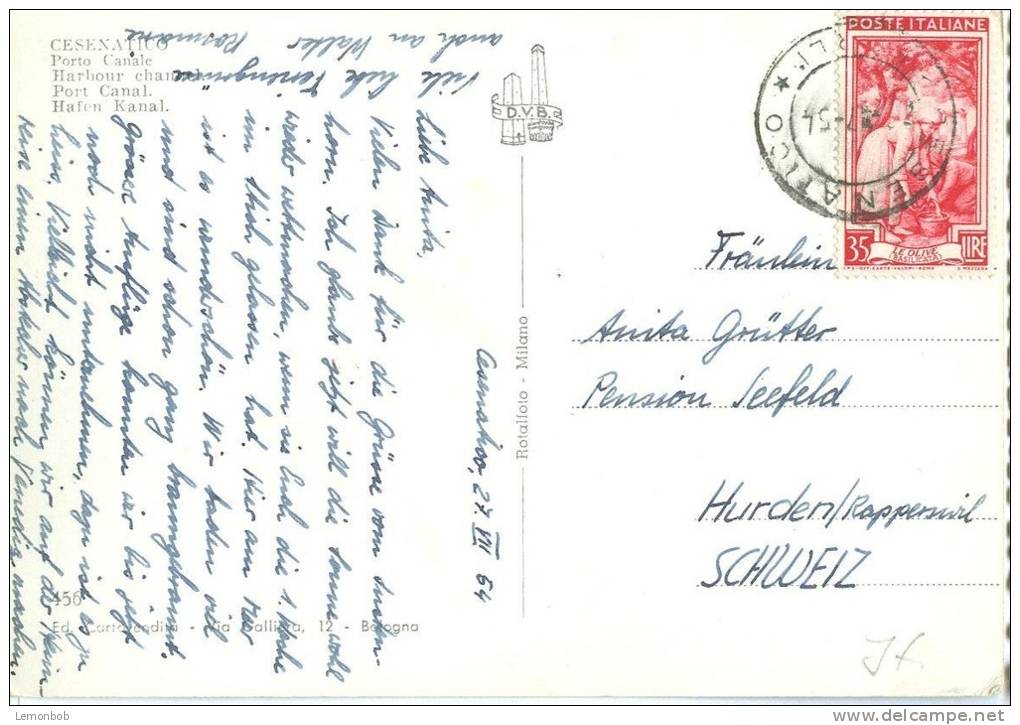 CESENATICO
Porto Canale
Harbour chan
Port Canal.
Hafen Kanal.
D.V.B.
POSTE ITALIANE
35 LIRE
LE OLIVE
BASILICATA
ENATICO
Cesenatico, 27. VII 54
Liebe Anita,
Vielen Dank für die Grüsse vom
horn. Ich glaube jetzt will die Sonne wohl
wieder gutmachen, wenn sie Euch die 1. Woche
im Stich gelassen hat. Hier am Meer
ist es wunderschön. Wir baden viel
und sind schon ganz braungebrannt.
Grössere Ausflüge konnten wir bis jetzt
noch nicht unternehmen, dazu ist's zu
heiss. Vielleicht können wir auf der Heim-
reise einen Abstecher nach Venedig machen.
Viele liebe Feriengrüsse
auch an Walter Rosmarie
Fräulein
Anita Grütter
Pension Seefeld
Hurden/Rapperswil
SCHWEIZ
Rotalfoto - Milano
456
Ed. Cartovendita - Via Galliera, 12 - Bologna
Lemonbob
www.delcampe.net